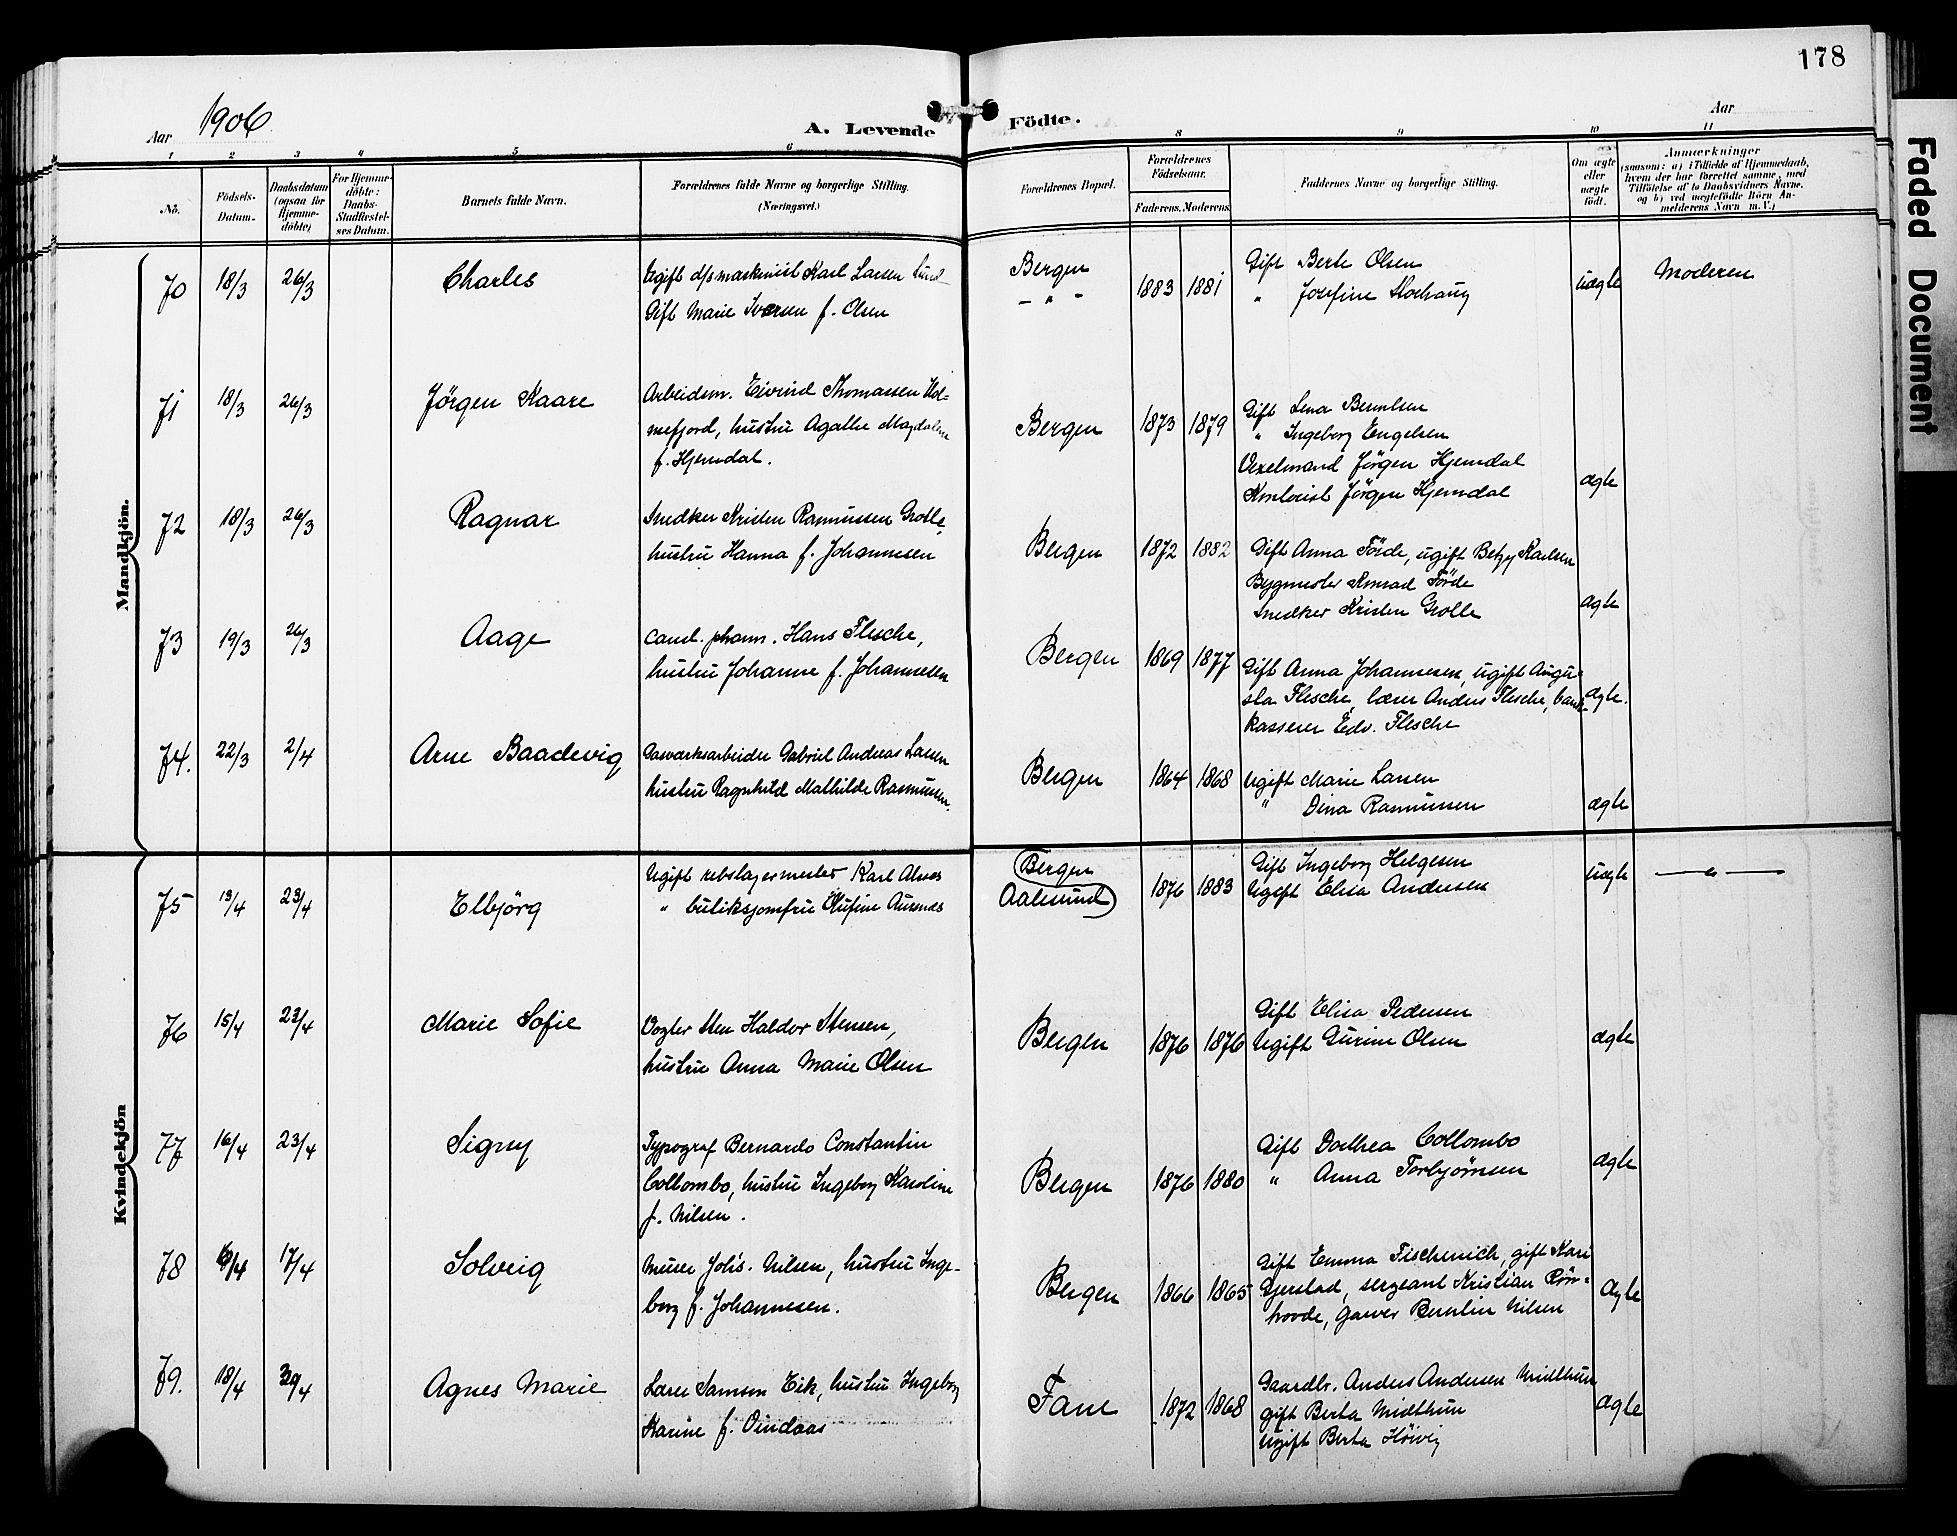 178
Aar 1906
A. Levende Födte.
Aar
1 2 3 4 5 6 8 9 10 11
No.
Födsels-Datum.
Daabsdatum (ogsaa for Hjemme-döbte)
For Hjemme-döbte: Daabs-Stadfæstel-ses Datum.
Barnets fulde Navn.
Forældrenes fulde Navne og borgerlige Stilling. (Næringsvei.)
Forældrenes Bopæl.
Forældrenes Födselsaar.
Faderens. Moderens.
Faddernes Navne og borgerlige Stilling.
Om ægte eller uægte födt.
Anmærkninger
(saasom: a) i Tilfælde af Hjemmedaab,
hvem der har forrettet samme, med
Tilföielse af to Daabsvidners Navne.
og b) ved uægtefödte Börn An-
melderens Navn m. V.)
Mandkjön.
70 18/3 26/3 Charles
Ugift d/s maskinist Karl Larsen Lund
Gift Marie Iversen f. Olsen
Bergen
– " –
1883 1881
Gift Berte Olsen
" Josefine
uægte
Moderen
71 18/3 26/3 Jörgen Kaare
Arbeidsm. Eivind Thomassen Hol-
mefjord, hustru Agathe Magdalene
f. Hjemdal.
Bergen 1873 1879
Gift Lena Berntsen
" Ingeborg Engelsen
Vexelmand Jörgen Hjemdal
Kontorist Jörgen Hjemdal
ægte
72 18/3 26/3 Ragnar
Snedker Kristen Rasmussen Grolle,
hustru Hanna f. Johannesen
Bergen 1872 1882
Gift Anna Förde, ugift Betzy Karlsen
Bygmester Konrad Förde
Snedker Kristen Grolle
ægte
73 19/3 26/3 Aage
cand. pharm. Hans Flesche,
hustru Johanne f. Johannesen
Bergen 1869 1877
Gift Anna Johannesen, ugift Augu-
sta Flesche, lærer Anders Flesche, bank-
kasserer Edv. Flesche
ægte.
74. 22/3 2/4 Arne Baadevig
Gasværksarbeider Gabriel Andreas Larsen
hustru Ragnhild Mathilde Rasmussen.
Bergen 1864 1868
Ugift Marie Larsen
" Dina Rasmussen
ægte
Kvindekjön
75 13/4 23/4 Elbjörg
Ugift rebslagermester Karl Alnes
" butiksjomfru Olufine Aursnes
Bergen
Aalesund
1876 1883
Gift Ingeborg Helgesen
Ugift Elisa Andersen
uægte
— " —
76 15/4 23/4 Marie Sofie
Vogter Sten Haldor Stensen,
hustru Anna Marie Olsen
Bergen 1876 1876
Gift Elisa Pedersen
Ugift Gurine Olsen
ægte
77 16/4 23/4 Signy
Typograf Bernardo Constantin
Collombo, hustru Ingeborg Karoline
f. Nilsen.
Bergen 1876 1880
Gift Dorthea Collombo
" Anna Torbjörnsen
ægte
78 17/4 Solveig
Murer Johs. Nilsen, hustru Inge-
borg f. Johannesen.
Bergen 1866 1865
Gift Emma Fischenich, gift Kari
Gjerstad, sergeant Kristian Rön-
hovde, garver Berntin Nilsen
ægte
79. 18/4 Agnes Marie
Lærer Samson Eik, hustru Ingeborg
Karine f. Vindaas
Fane 1872 1868
Gaardbr. Anders Andersen Midthun
gift Berta Midthun
Ugift Berta
ægte
Faded Document